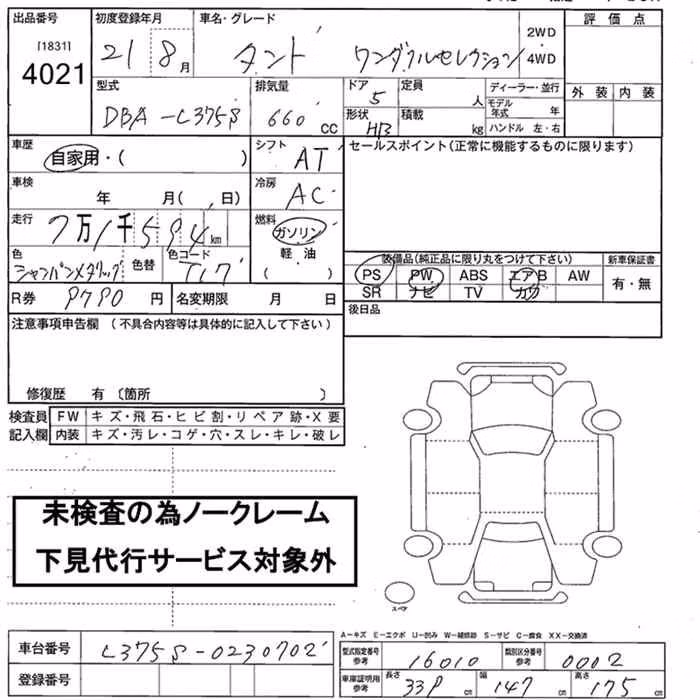 出品番号 初度登録年月 車名・グレード 評価点
[1831]
4021
21 8月 タント ワンダフルセレクション 2WD 4WD
外装 内装
型式 排気量 ドア 定員 ディーラー・並行
DBA-L375S 660 cc 5 人 モデル年式 年
形状 積載 ハンドル 左・右
HB kg
車歴 シフト セールスポイント(正常に機能するものに限ります)
自家用・( ) AT
車検 冷房
年 月( 、日) AC
走行 燃料
7万1千594km ガソリン
色 色替 色コード 軽油
シャンパンメタリック T17 ( )
装備品(純正品に限り丸をつけて下さい) 新車保証書
PS PW ABS エアB AW 有・無
SR ナビ TV カワ
R券 9790円 名変期限 月 日
後日品
注意事項申告欄(不具合内容等は具体的に記入して下さい)
修復歴 有(箇所 )
検査員 FW キズ・飛石・ヒビ割・リペア跡・X要
記入欄 内装 キズ・汚レ・コゲ・穴・スレ・キレ・破レ
未検査の為ノークレーム
下見代行サービス対象外
スペア
A-キズ E-エクボ U-凹み W-補修跡 S-サビ C-腐食 XX-交換済
車台番号 L375S-0230702
型式指定番号 参考 16010 類別区分番号 参考 0002
登録番号
車庫証明用 参考 長さ 339 cm 幅 147 cm 高さ 175 cm